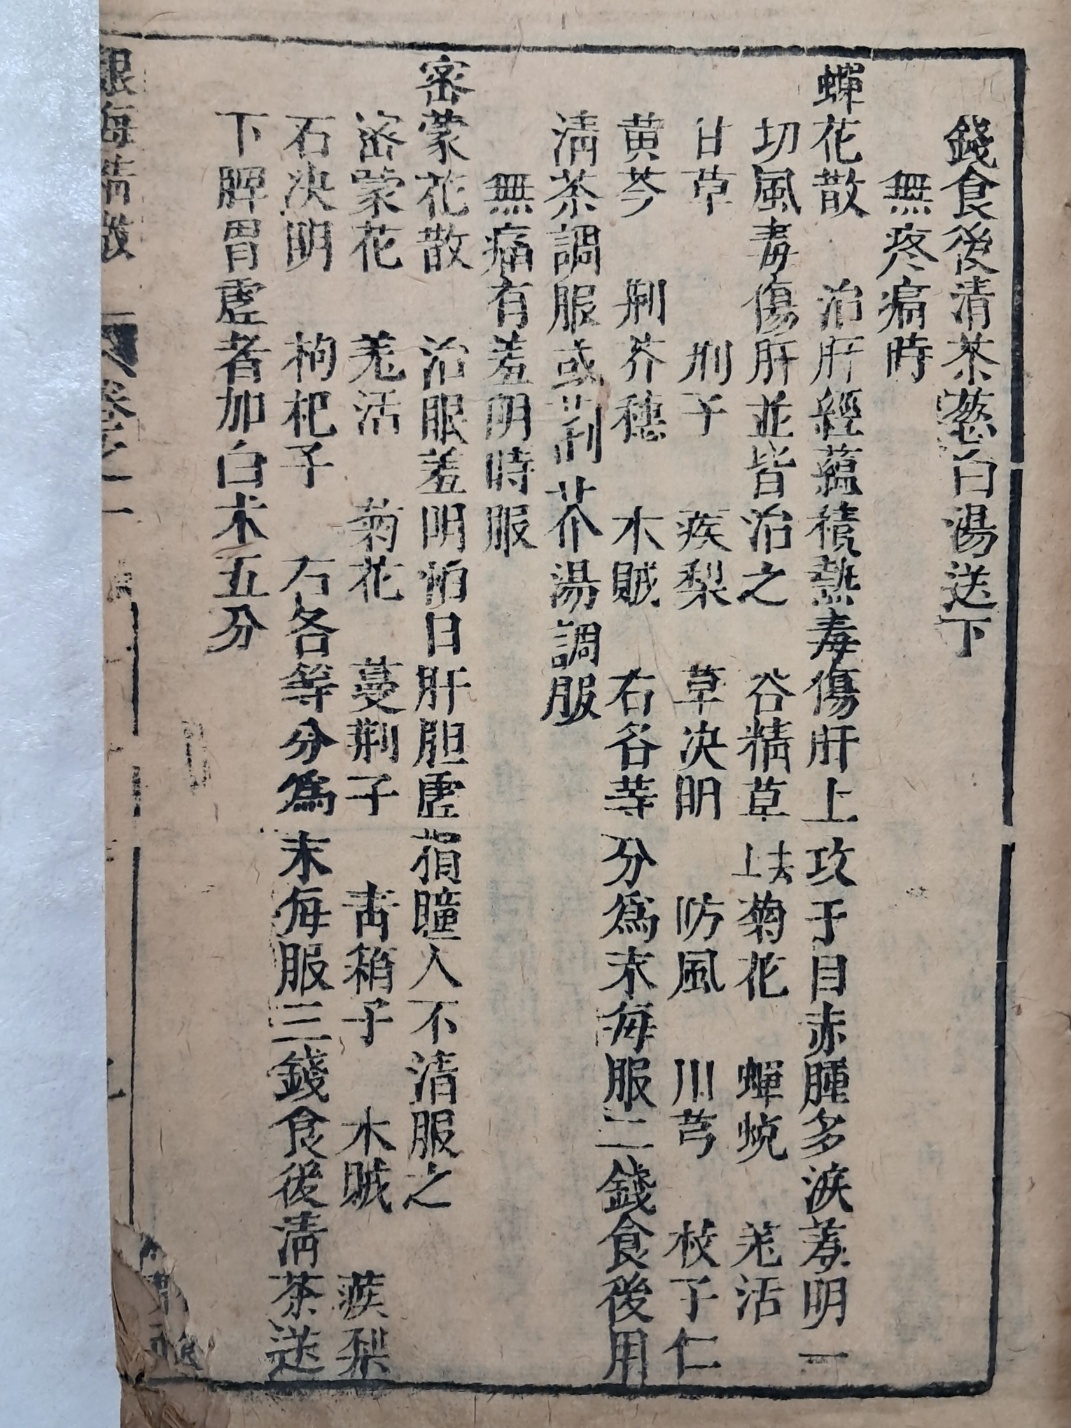 錢食後清茶葱白湯送下
無疼痛時
蟬花散　治肝經蘊積熱毒傷肝上攻于目赤腫多淚羞明一
切風毒傷肝並皆治之　谷精草去土　菊花　蟬蛻　羌活
甘草　荆子　疾梨　草决明　防風　川芎　梔子仁
黄芩　荆芥穗　木賊　右各等分爲末每服二錢食後用
清茶調服或荆芥湯調服
無痛有羞明時服
密蒙花散　治眼羞明怕日肝胆虚損瞳人不清服之
密蒙花　羌活　菊花　蔓荆子　青箱子　木賊　蒺梨
石决明　枸杞子　右各等分爲末每服三錢食後清茶送
下脾胃虚者加白术五分
銀海精微　卷之一